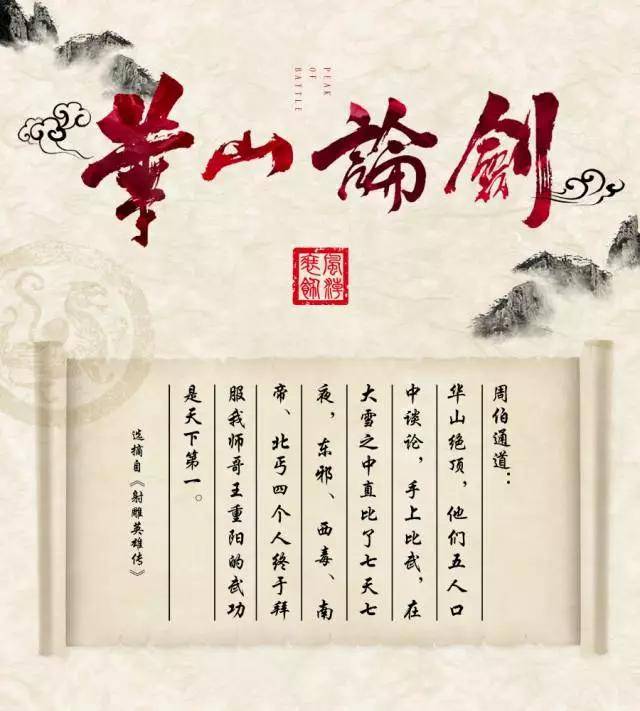 PEAK
OF
BATTLE
華山論劍
周伯通道：
华山绝顶，他们五人口
中谈论，手上比武，在
大雪之中直比了七天七
夜，东邪、西毒、南
帝、北丐四个人终于拜
服我师哥王重阳的武功
是天下第一。
选摘自《射雕英雄传》